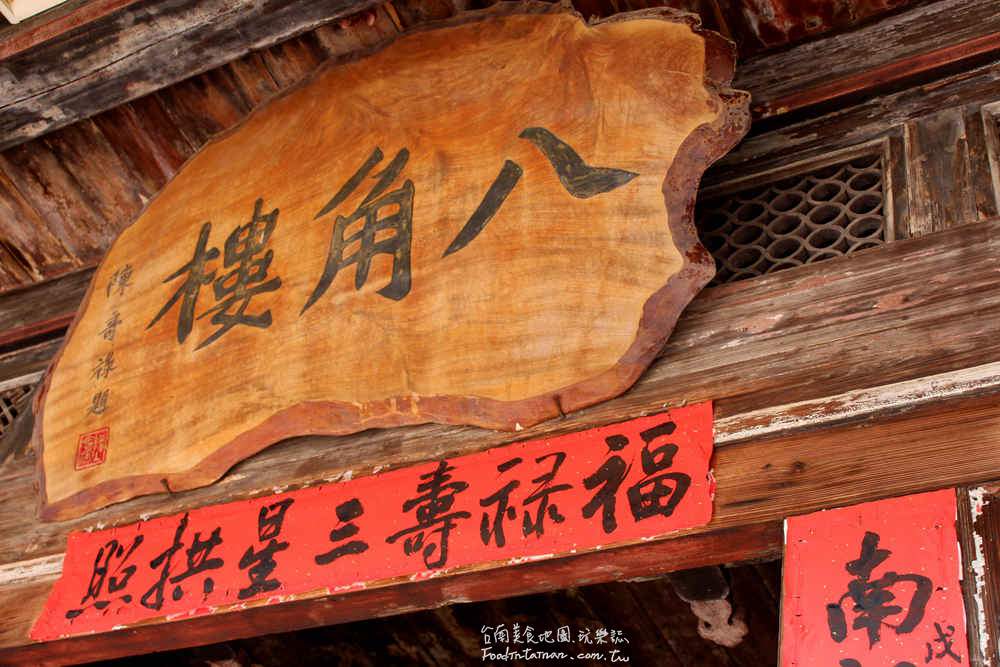 八角樓
陳壽祿題
福祿壽三星拱照
南
戊
台南美食地圖.玩樂誌
Foodintainan.com.tw